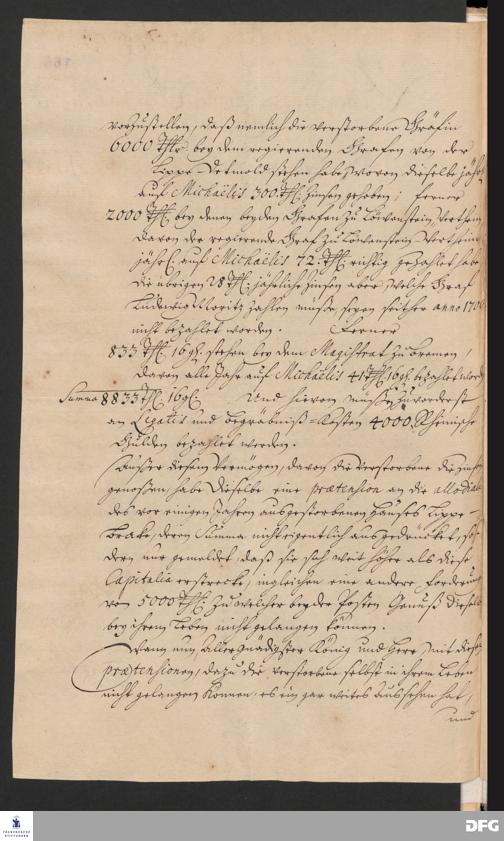 vorzustellen, daß nemlich die verstorbene Gräfin
6000 Thlr. bey dem regierenden Grafen von der
Lippe Detmold stehen habe, wovon dieselbe jähr
auf Michaëlis 300. Thl. Zinsen gehoben; ferner
2000 Thl. bey denen beyden Grafen zu Löwenstein Wertheim
davon der regierende Graf zu Löwenstein Wertheim
jährl. auf Michaëlis 72. Thl. richtig gezahlet habe
die übrigen 28 Thl. jährliche Zinsen aber, welche Graf
Ludwig Moritz zahlen müße, seyen seither anno 170
nicht bezahlet worden. Ferner
833 Thl. 16 gl. stehen bey dem Magistrat zu Bremen,
davon alle Jahr auf Michaëlis 41 Thl. 16 gl. bezahlet word
Summa 8833 Thl. 16 gl. Und hievon müßen zuvorderst
an Legatis und Begräbniß-Kosten 4000. Rheinische
Gulden bezahlet werden.
Außer diesem Vermögen, davon die verstorbene die Zinsen
genoßen, habe dieselbe eine prætension an die allodial
des vor einigen Jahren ausgestorbenen Hauses Lippe-
Brake, deren Summa nicht eigentlich ausgedrücket, son
dern nur gemeldet, daß sie sich weit höher als diese
Capitalia erstrecke, ingleichen eine andere Forderung
von 5000 Thl. zu welcher beyder Posten Genuß dieselb
bey ihrem Leben nicht gelangen können.
Wann nun Allergnädigster König und Herr, mit diesen
prætensionen, dazu die verstorbene selbst in ihrem Leben
nicht gelangen können, es ein gar weites Aussehen hat,
und
FRANCKESCHE
STIFTUNGEN
DFG